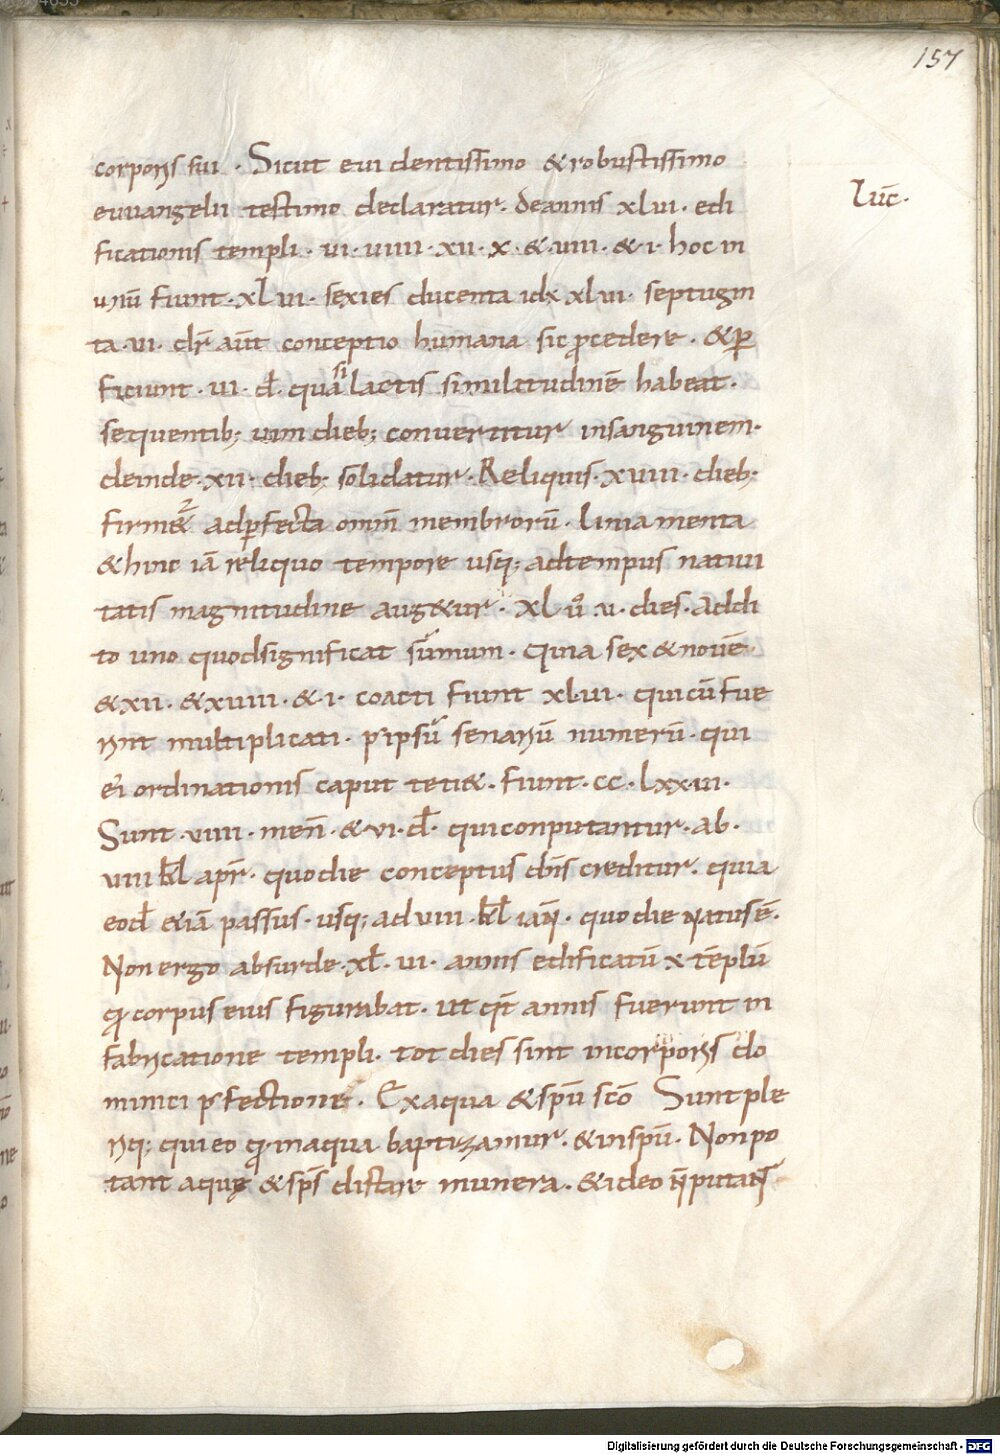 157
corporis sui · Sicut eui dentissimo & robustissimo
Luc̄.
euuangelii testimo declaratur. deannis xlvi · edi
ficationis templi · vi · viiii · xii · x · & · viii · & · i · hoc in
unū fiunt · xlvi · sexies ducenta idx xlvi · septugin
ta · vi · dr̄ aūt conceptio humana sic p̱cedere · & ꝑ
ficiunt · vi · d̄ · quasi lactis similitudinē habeat ·
sequentib; viiii dieb; conuertitur insanguinem ·
deinde · xii · dieb; solidatur · Reliquis · xviii · dieb;
firmet᷑ adꝑfecta omniū membrorū · liniamenta
& hinc iā reliquo tempore usq; adtempus natiui
tatis magnitudine augetur · xl · u̽ · v · dies · Addi
to uno quodsignificat sūmum · Quia sex & nouē
& xii · & xviii · & · i · coacti fiunt xl · vi · qui cū fue
rint multiplicati · p ipsū senariū numerū · qui
ei ordinationis caput tenet · fiunt · cc · lxx · vi ·
Sunt · viiii · men̄ · & · vi · d̄ · qui conputantur · ab ·
viii kl̄ apr̄ · quo die conceptus dn̄s creditur · quia
eod̄ etiā passus · usq; ad viii · kl̄ ian̄ · quo die natus ē ·
Non ergo absurde · xl̄ · vi · annis edificatū x templū
q̱ corpus eius figurabat · ut qt̄ annis fuerunt in
fabricatione templi · tot dies sint incorporis do
minici p fectione · Ex aqua & spū scō Sunt ple
riq; qui eo q̱ inaqua baptizamur · & inspū · Non po
tant aquę & sp̄s distare munera · & ideo n̄ putant
Digitalisierung gefördert durch die Deutsche Forschungsgemeinschaft - DFG